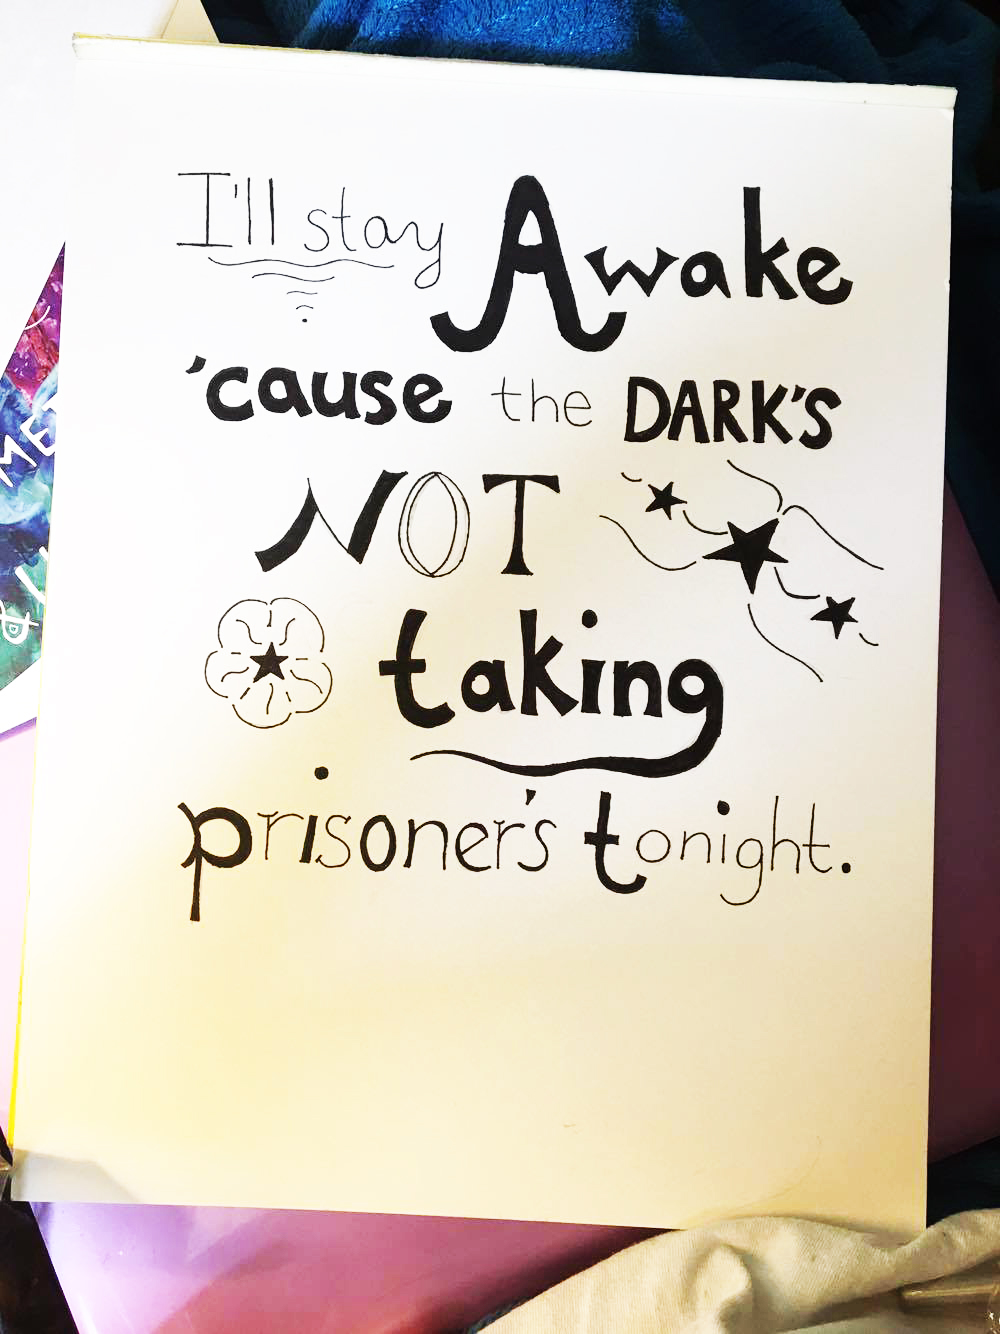 I'll stay Awake
'cause the DARK'S
NOT
taking
prisoner's tonight.
ME